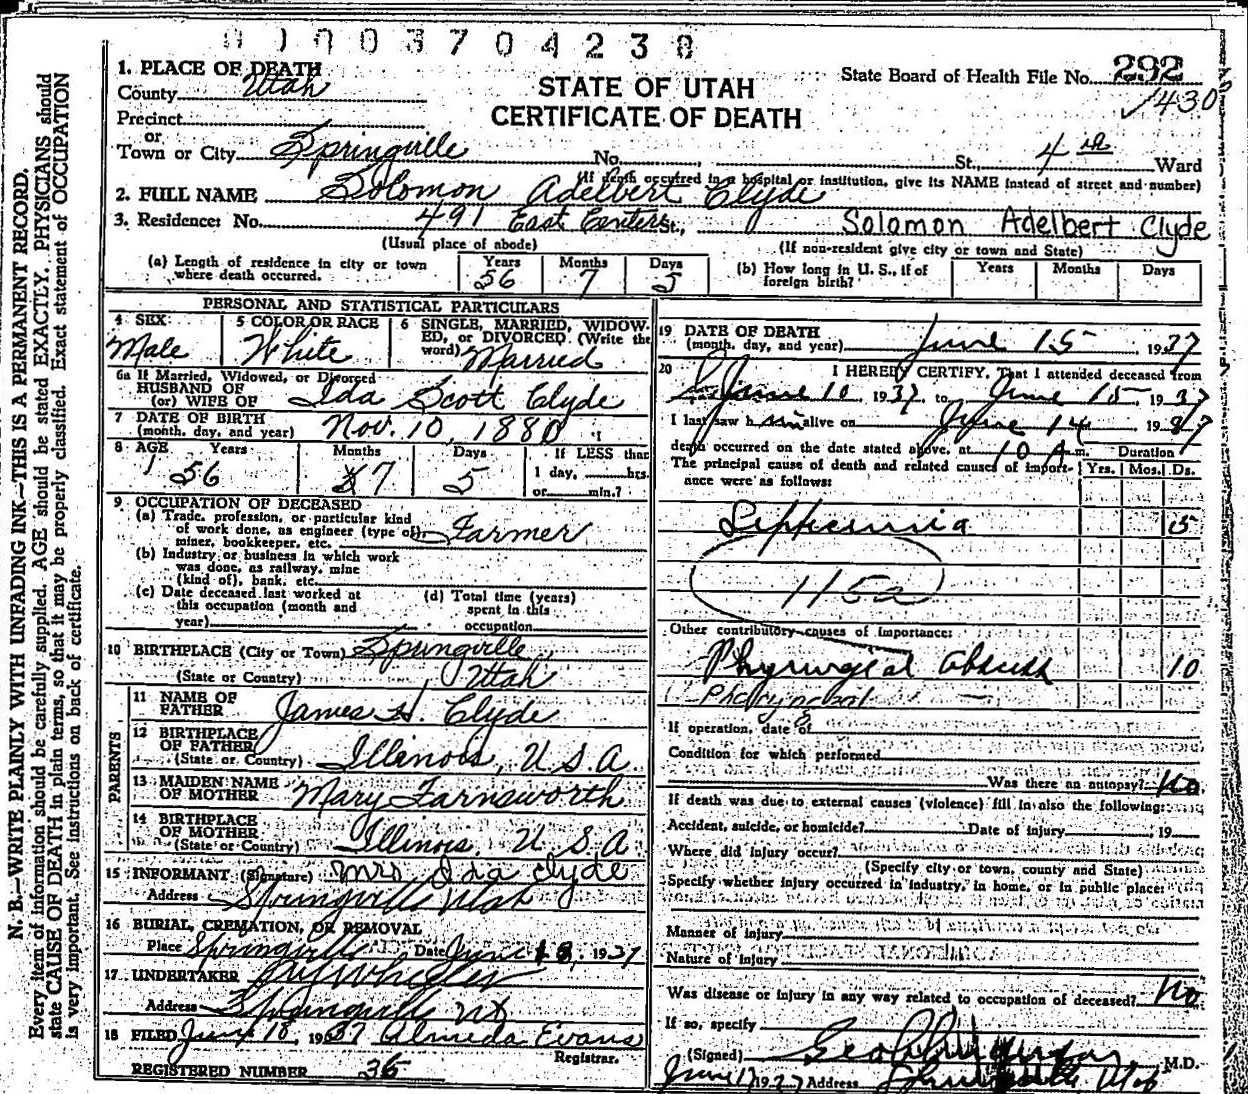 01003704230
1. PLACE OF DEATH
County Utah
STATE OF UTAH
CERTIFICATE OF DEATH
State Board of Health File No. 292
1430
Precinct
or
Town or City Springville No. , St. 4 th Ward
(If death occurred in a hospital or institution, give its NAME instead of street and number)
2. FULL NAME Solomon Adelbert Clyde
3. Residence: No. 491 East Center St., Solomon Adelbert Clyde
(Usual place of abode) (If non-resident give city or town and State)
(a) Length of residence in city or town where death occurred. Years 56 Months 7 Days 5
(b) How long in U. S., if of foreign birth? Years Months Days
PERSONAL AND STATISTICAL PARTICULARS
4 SEX Male
5 COLOR OR RACE White
6 SINGLE, MARRIED, WIDOWED, or DIVORCED (Write the word) Married
6a If Married, Widowed, or Divorced
HUSBAND OF
(or) WIFE OF Ida Scott Clyde
7 DATE OF BIRTH
(month, day, and year) Nov. 10, 1880
8 AGE Years 56 Months 7 Days 5 If LESS than
1 day, hrs.
or min.?
9 OCCUPATION OF DECEASED
(a) Trade, profession, or particular kind
of work done, as engineer (type of),
miner, bookkeeper, etc. Farmer
(b) Industry or business in which work
was done, as railway, mine
(kind of), bank, etc.
(c) Date deceased last worked at
this occupation (month and
year)
(d) Total time (years)
spent in this
occupation
10 BIRTHPLACE (City or Town) Springville
(State or Country) Utah
PARENTS
11 NAME OF
FATHER James H. Clyde
12 BIRTHPLACE
OF FATHER
(State or Country) Illinois, U. S. A
13 MAIDEN NAME
OF MOTHER Mary Farnsworth
14 BIRTHPLACE
OF MOTHER
(State or Country) Illinois, U. S. A
15 INFORMANT (Signature) Mrs Ida Clyde
Address Springville Utah
16 BURIAL, CREMATION, OR REMOVAL
Place Springville Date June 18, 1937
17 UNDERTAKER Wheeler
Address Springville Ut
18 FILED June 18, 1937 Almeda Evans
Registrar.
REGISTERED NUMBER 36
19 DATE OF DEATH
(month, day, and year) June 15, 1937
20 I HEREBY CERTIFY, That I attended deceased from
June 10 1937, to June 15, 1937
I last saw him alive on June 14 1937
death occurred on the date stated above, at 10 A m.
The principal cause of death and related causes of importance were as follows:
Duration
Yrs. Mos. Ds.
Septicemia 5
115a
Other contributory causes of importance:
Pharyngeal abscess 10
If operation, date of
Condition for which performed
Was there an autopsy? No
If death was due to external causes (violence) fill in also the following:
Accident, suicide, or homicide? Date of injury 19
Where did injury occur?
(Specify city or town, county and State)
Specify whether injury occurred in industry, in home, or in public place:
Manner of injury
Nature of injury
Was disease or injury in any way related to occupation of deceased? No
If so, specify
(Signed) Geo M.D.
June 17 1937 Address Springville Utah
N. B.—WRITE PLAINLY WITH UNFADING INK—THIS IS A PERMANENT RECORD.
Every item of information should be carefully supplied. AGE should be stated EXACTLY. PHYSICIANS should
state CAUSE OF DEATH in plain terms, so that it may be properly classified. Exact statement of OCCUPATION
is very important. See instructions on back of certificate.